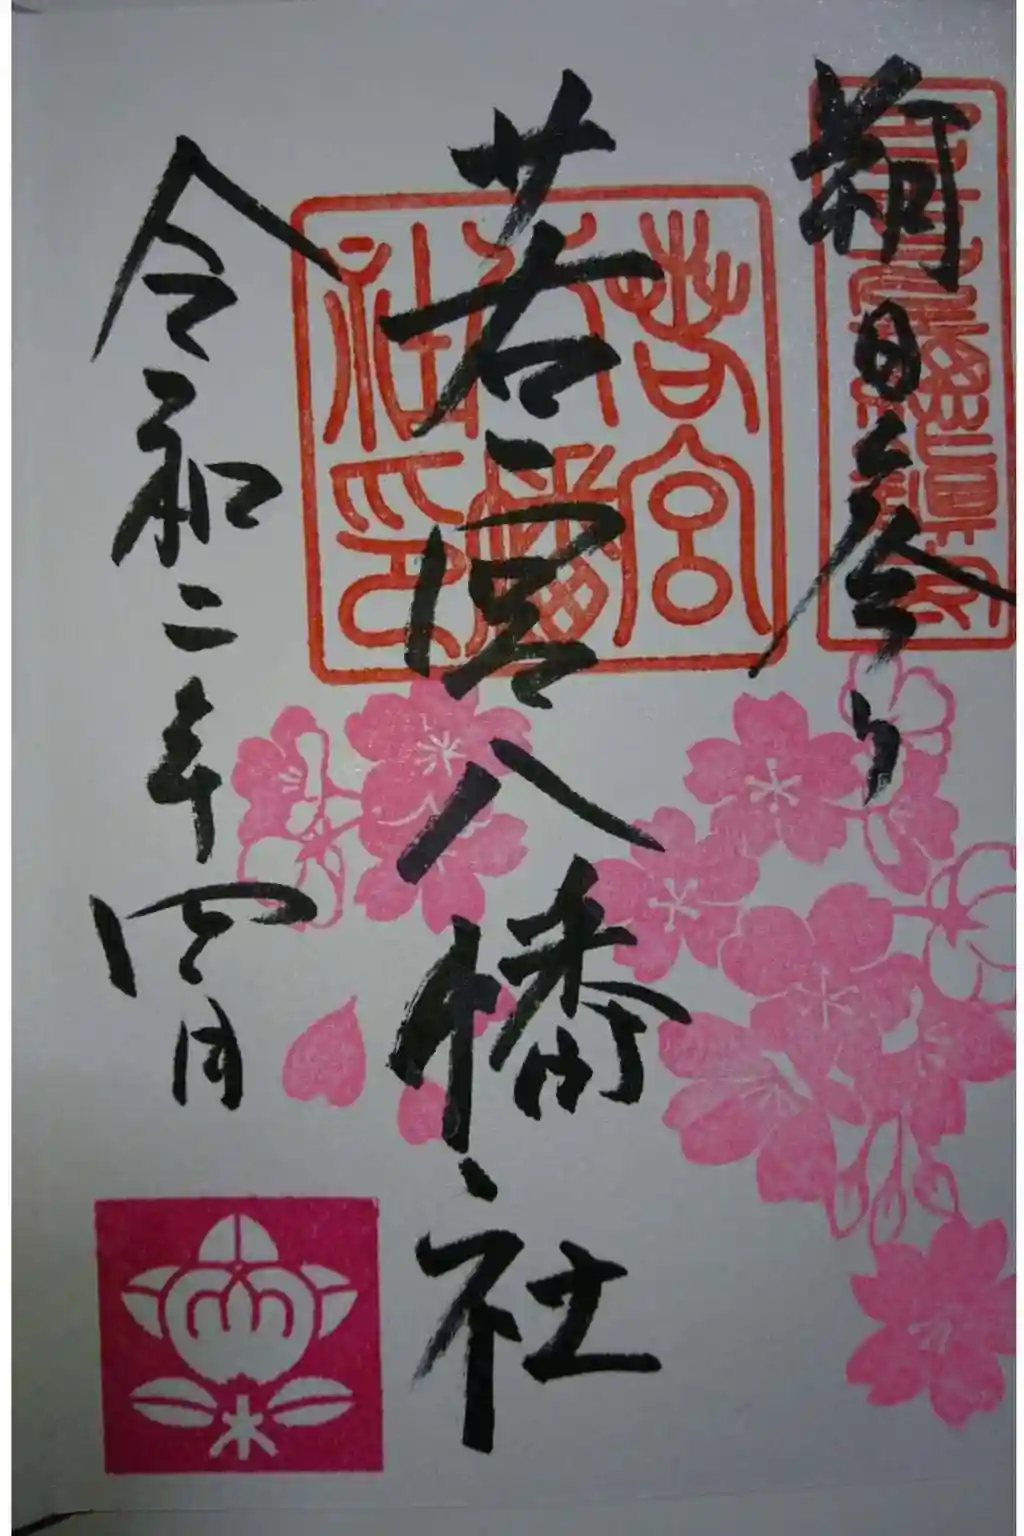 朔日参り
若宮八幡社
令和二年四月
若宮
八幡
社印